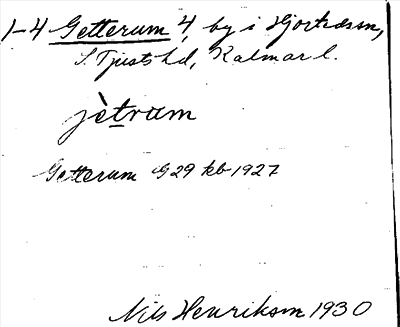 1-4 Getterum 4, by i Hjorted sn,
S. Tjusts hd, Kalmar l.
jètrum
Getterum G29 kb 1927
Nils Henrikson 1930